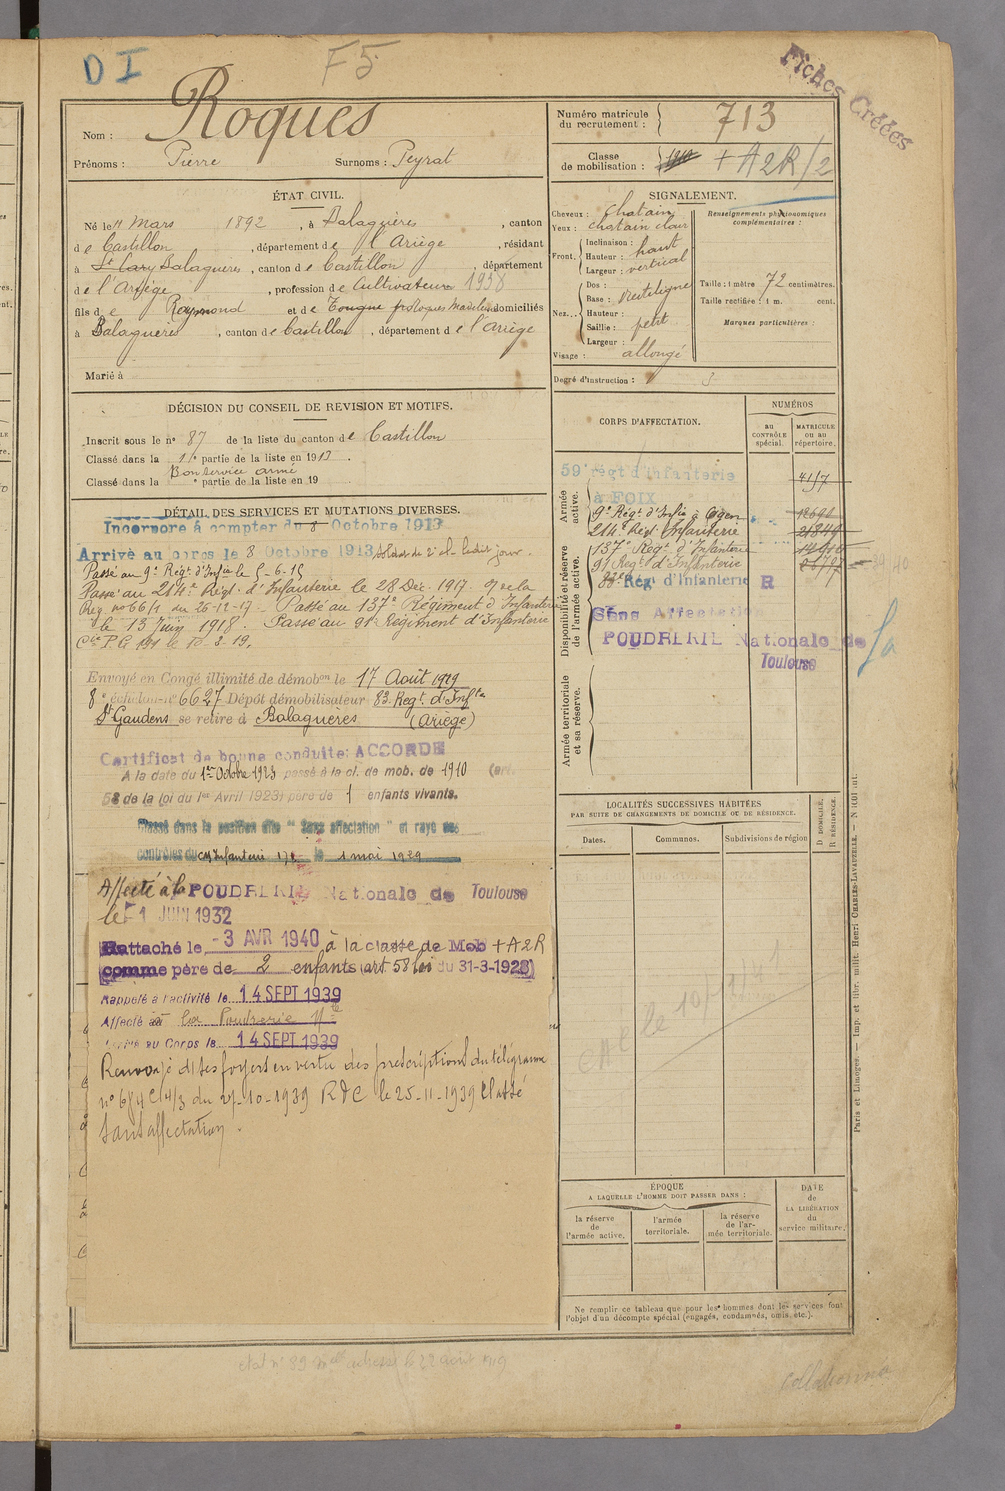 D I
F5
Fiches Créées
Nom : Roques
Prénoms : Pierre Surnoms : Peyrat
Numéro matricule du recrutement : 713
Classe de mobilisation : 1910 + A2R/2
ÉTAT CIVIL.
Né le 11 Mars 1892, à Balaguères, canton
de Castillon, département de l'Ariège, résidant
à St Lary Balaguères, canton de Castillon, département
de l'Ariège, profession de Cultivateur 1938
fils de Raymond et de Madeleine domiciliés
à Balaguères, canton de Castillon, département de l'Ariège
Marié à
SIGNALEMENT.
Cheveux : chatain
Yeux : chatain clair
Front. Inclinaison :
Hauteur : haut
Largeur : vertical
Nez... Dos :
Base : rectiligne
Hauteur :
Saillie : petit
Largeur :
Visage : allongé
Renseignements physionomiques complémentaires :
Taille : 1 mètre 72 centimètres.
Taille rectifiée : 1 m. cent.
Marques particulières :
Degré d'instruction :
DÉCISION DU CONSEIL DE REVISION ET MOTIFS.
Inscrit sous le n° 87 de la liste du canton de Castillon
Classé dans la 1re partie de la liste en 1913.
Bon service armé
Classé dans la ° partie de la liste en 19
DÉTAIL DES SERVICES ET MUTATIONS DIVERSES.
Incorporé à compter du 8 Octobre 1913
Arrivé au corps le 8 Octobre 1913, soldat de 2e cl. ledit jour.
Passé au 9e Régt. d'Inf le 5-6-15
Passé au 214e Régt. d'Infanterie le 28 Déc. 1917.
Rég. n° 66/1 du 26-12-17 - Passé au 137e Régiment d'Infanterie
le 13 Juin 1918. Passé au 91e Régiment d'Infanterie
Envoyé en Congé illimité de démobon le 17 Août 1919
8e échelon n° 6627 Dépôt démobilisateur 83. Regt. d'Inf
St Gaudens se retire à Balaguères (Ariège)
Certificat de bonne conduite: ACCORDÉ
A la date du 1er Octobre 1923 passé à la cl. de mob. de 1910 (art.
58 de la loi du 1er Avril 1923) père de 1 enfants vivants.
Classé dans la position dite "Sans affectation" et rayé des
contrôles du CM Infanterie 17e le 1 mai 1929
Affecté à la POUDRERIE Nationale de Toulouse
le 1 JUIN 1932
Rattaché le - 3 AVR 1940 à la classe de Mob + A2R
comme père de 2 enfants (art 58 loi du 31-3-1928)
Rappelé à l'activité le 14 SEPT 1939
Affecté à la Poudrerie Nle
Arrivé au Corps le 14 SEPT 1939
Renvoyé ds ses foyers en vertu des prescriptions du télégramme
du 27-10-1939 RDC le 25-11-1939 Classé
sans affectation.
CORPS D'AFFECTATION.
NUMÉROS
AU CONTRÔLE spécial.
MATRICULE OU AU répertoire.
Armée active.
59e régt d'infanterie à FOIX 4157
9e Régt. d'Infie à Agen
214e Régt Infanterie 21849
Disponibilité et réserve de l'armée active.
137e Régt d'Infanterie
91 Régt d'Infanterie
83e Rég d'Infanterie R
Sans Affectation
POUDRERIE Nationale de Toulouse
Sa
Armée territoriale et sa réserve.
LOCALITÉS SUCCESSIVES HABITÉES
PAR SUITE DE CHANGEMENTS DE DOMICILE OU DE RÉSIDENCE.
Dates.
Communes.
Subdivisions de région
D. DOMICILE.
R. RÉSIDENCE.
ÉPOQUE
A LAQUELLE L'HOMME DOIT PASSER DANS :
la réserve de l'armée active.
l'armée territoriale.
la réserve de l'armée territoriale.
DATE de LA LIBÉRATION du service militaire.
Ne remplir ce tableau que pour les hommes dont les services font
l'objet d'un décompte spécial (engagés, condamnés, omis, etc.).
Paris et Limoges. — Imp. et libr. milit. Henri CHARLES-LAVAUZELLE.
Collationné